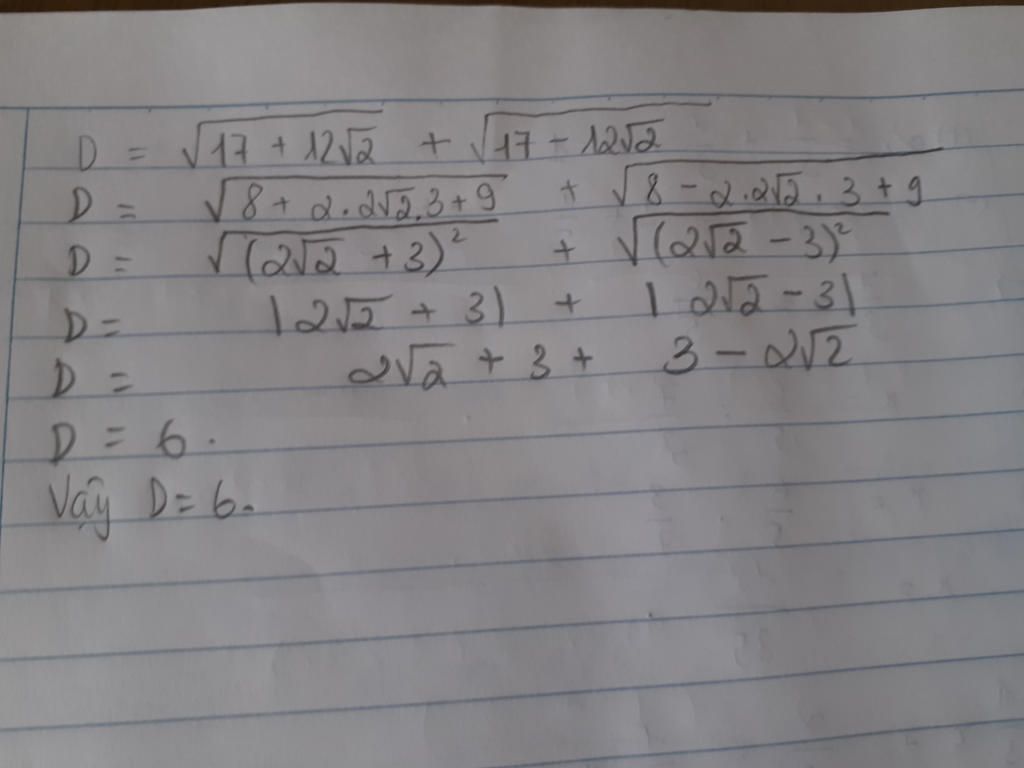 D = √(17 + 12√2) + √(17 - 12√2)
D = √(8 + 2.2√2.3 + 9) + √(8 - 2.2√2.3 + 9)
D = √((2√2 + 3)²) + √((2√2 - 3)²)
D = |2√2 + 3| + |2√2 - 3|
D = 2√2 + 3 + 3 - 2√2
D = 6.
Vậy D = 6.